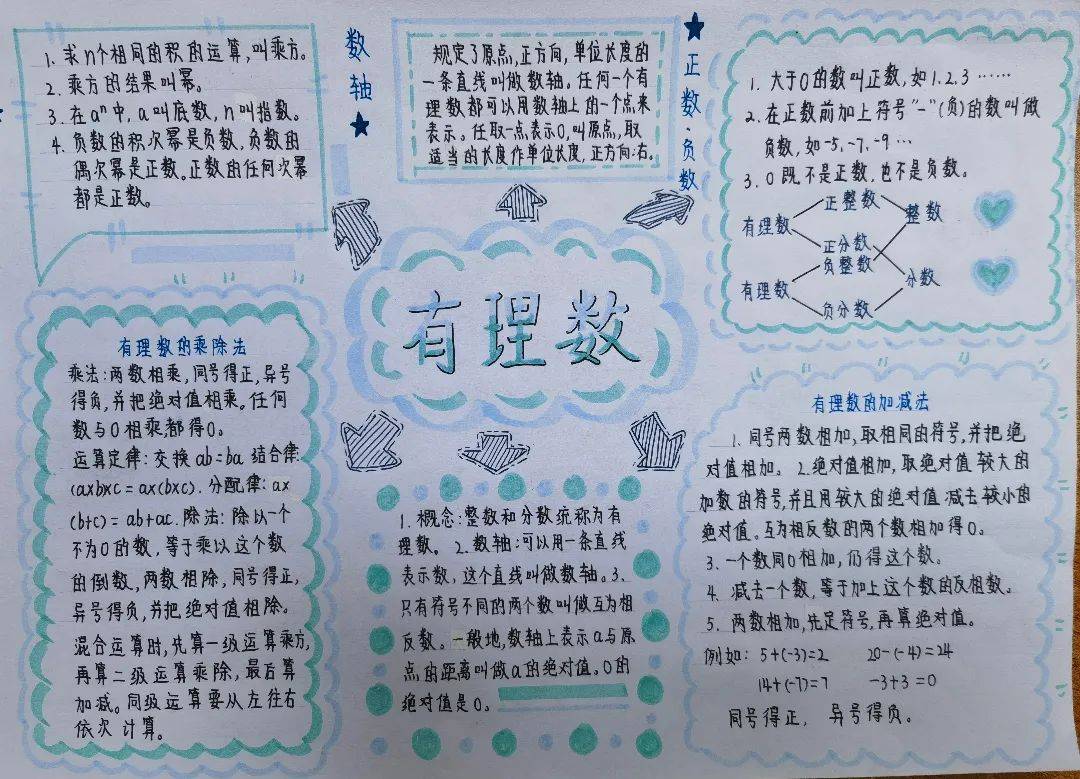 1. 求n个相同的积的运算,叫乘方。
2. 乘方的结果叫幂。
3. 在aⁿ中,a叫底数,n叫指数。
4. 负数的积次幂是负数,负数的
偶次幂是正数。正数的任何次幂
都是正数。
数轴★
规定了原点,正方向,单位长度的
一条直线叫做数轴。任何一个有
理数都可以用数轴上的一个点来
表示。任取一点表示0,叫原点,取
适当的长度作单位长度,正方向:右。
★正数·负数
1. 大于0的数叫正数,如1.2.3……
2. 在正数前加上符号"-"(负)的数叫做
负数,如-5,-7,-9…
3. 0既不是正数,也不是负数。
有理数 正整数 整数
正分数
有理数 负整数 分数
负分数
有理数
有理数的乘除法
乘法:两数相乘,同号得正,异号
得负,并把绝对值相乘。任何
数与0相乘,都得0。
运算定律:交换ab=ba 结合律:
(axb)xc=ax(bxc).分配律:ax
(b+c)=ab+ac.除法:除以一个
不为0的数,等于乘以这个数
的倒数,两数相除,同号得正,
异号得负,并把绝对值相除。
混合运算时,先算一级运算乘方,
再算二级运算乘除,最后算
加减。同级运算要从左往右
依次计算。
1. 概念:整数和分数统称为有
理数。2.数轴:可以用一条直线
表示数,这个直线叫做数轴。3.
只有符号不同的两个数叫做互为相
反数。一般地,数轴上表示a与原
点的距离叫做a的绝对值。0的
绝对值是0。
有理数的加减法
1. 同号两数相加,取相同的符号,并把绝
对值相加。2.绝对值相加,取绝对值较大的
加数的符号,并且用较大的绝对值减去较小的
绝对值。互为相反数的两个数相加得0。
3. 一个数同0相加,仍得这个数。
4. 减去一个数,等于加上这个数的反相数。
5. 两数相加,先足符号,再算绝对值。
例如: 5+(-3)=2 20-(-4)=24
14+(-7)=7 -3+3=0
同号得正, 异号得负。